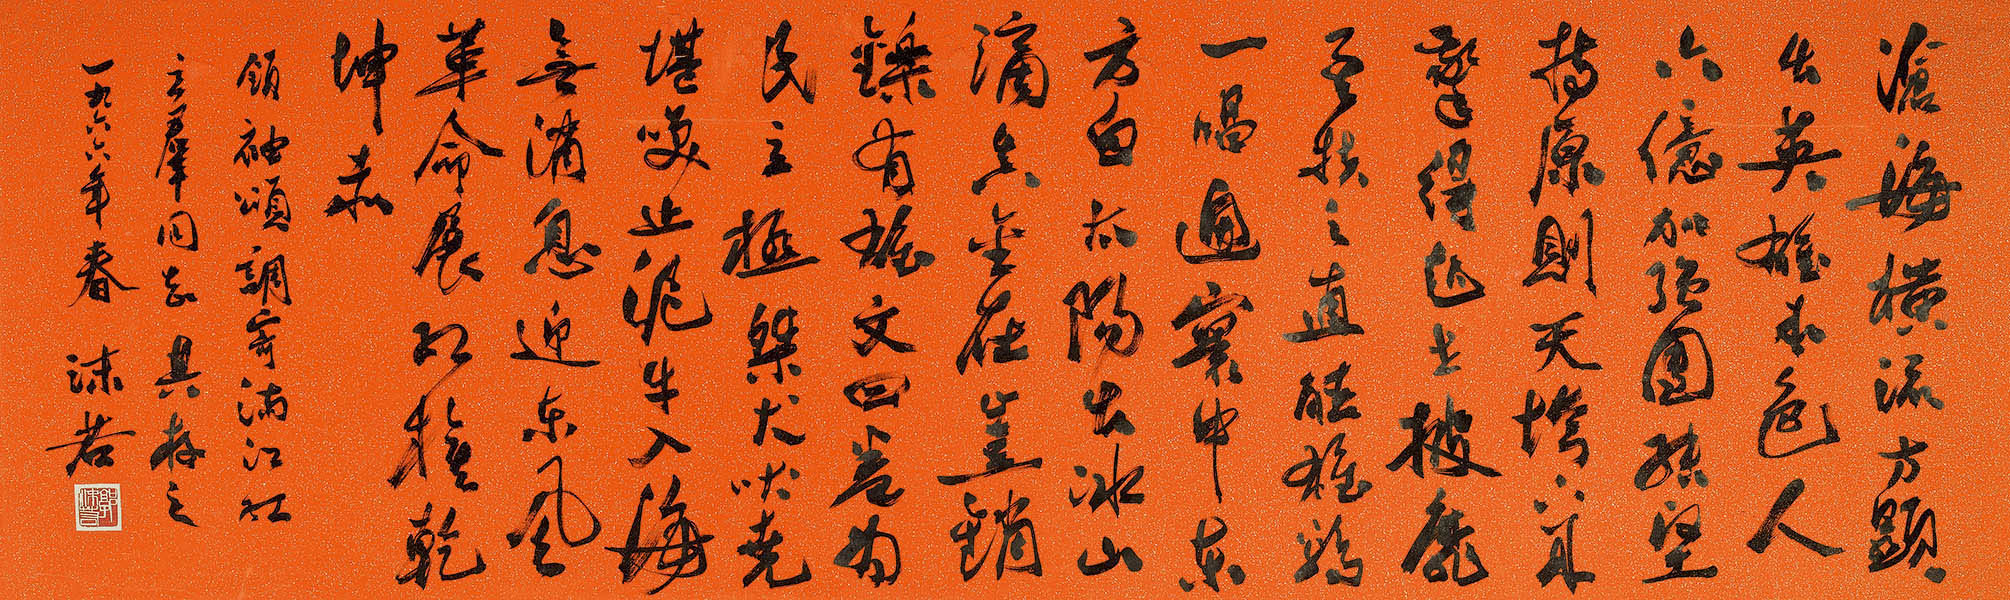 滄海橫流方顯
出英雄本色人
六億加強團結堅
持原則天垮下來
擎得起世披靡
矣扶之直聽雄鷄
一唱遍寰中東
方白太陽出冰山
滴真金在豈銷
鑠有雄文四卷為
民立極桀犬吠堯
堪咲止泥牛入海
無消息迎東風
革命展紅旗乾
坤赤
領袖頌調寄滿江紅
立羣同志 具存之
一九六六年春 沫若
郭沫若